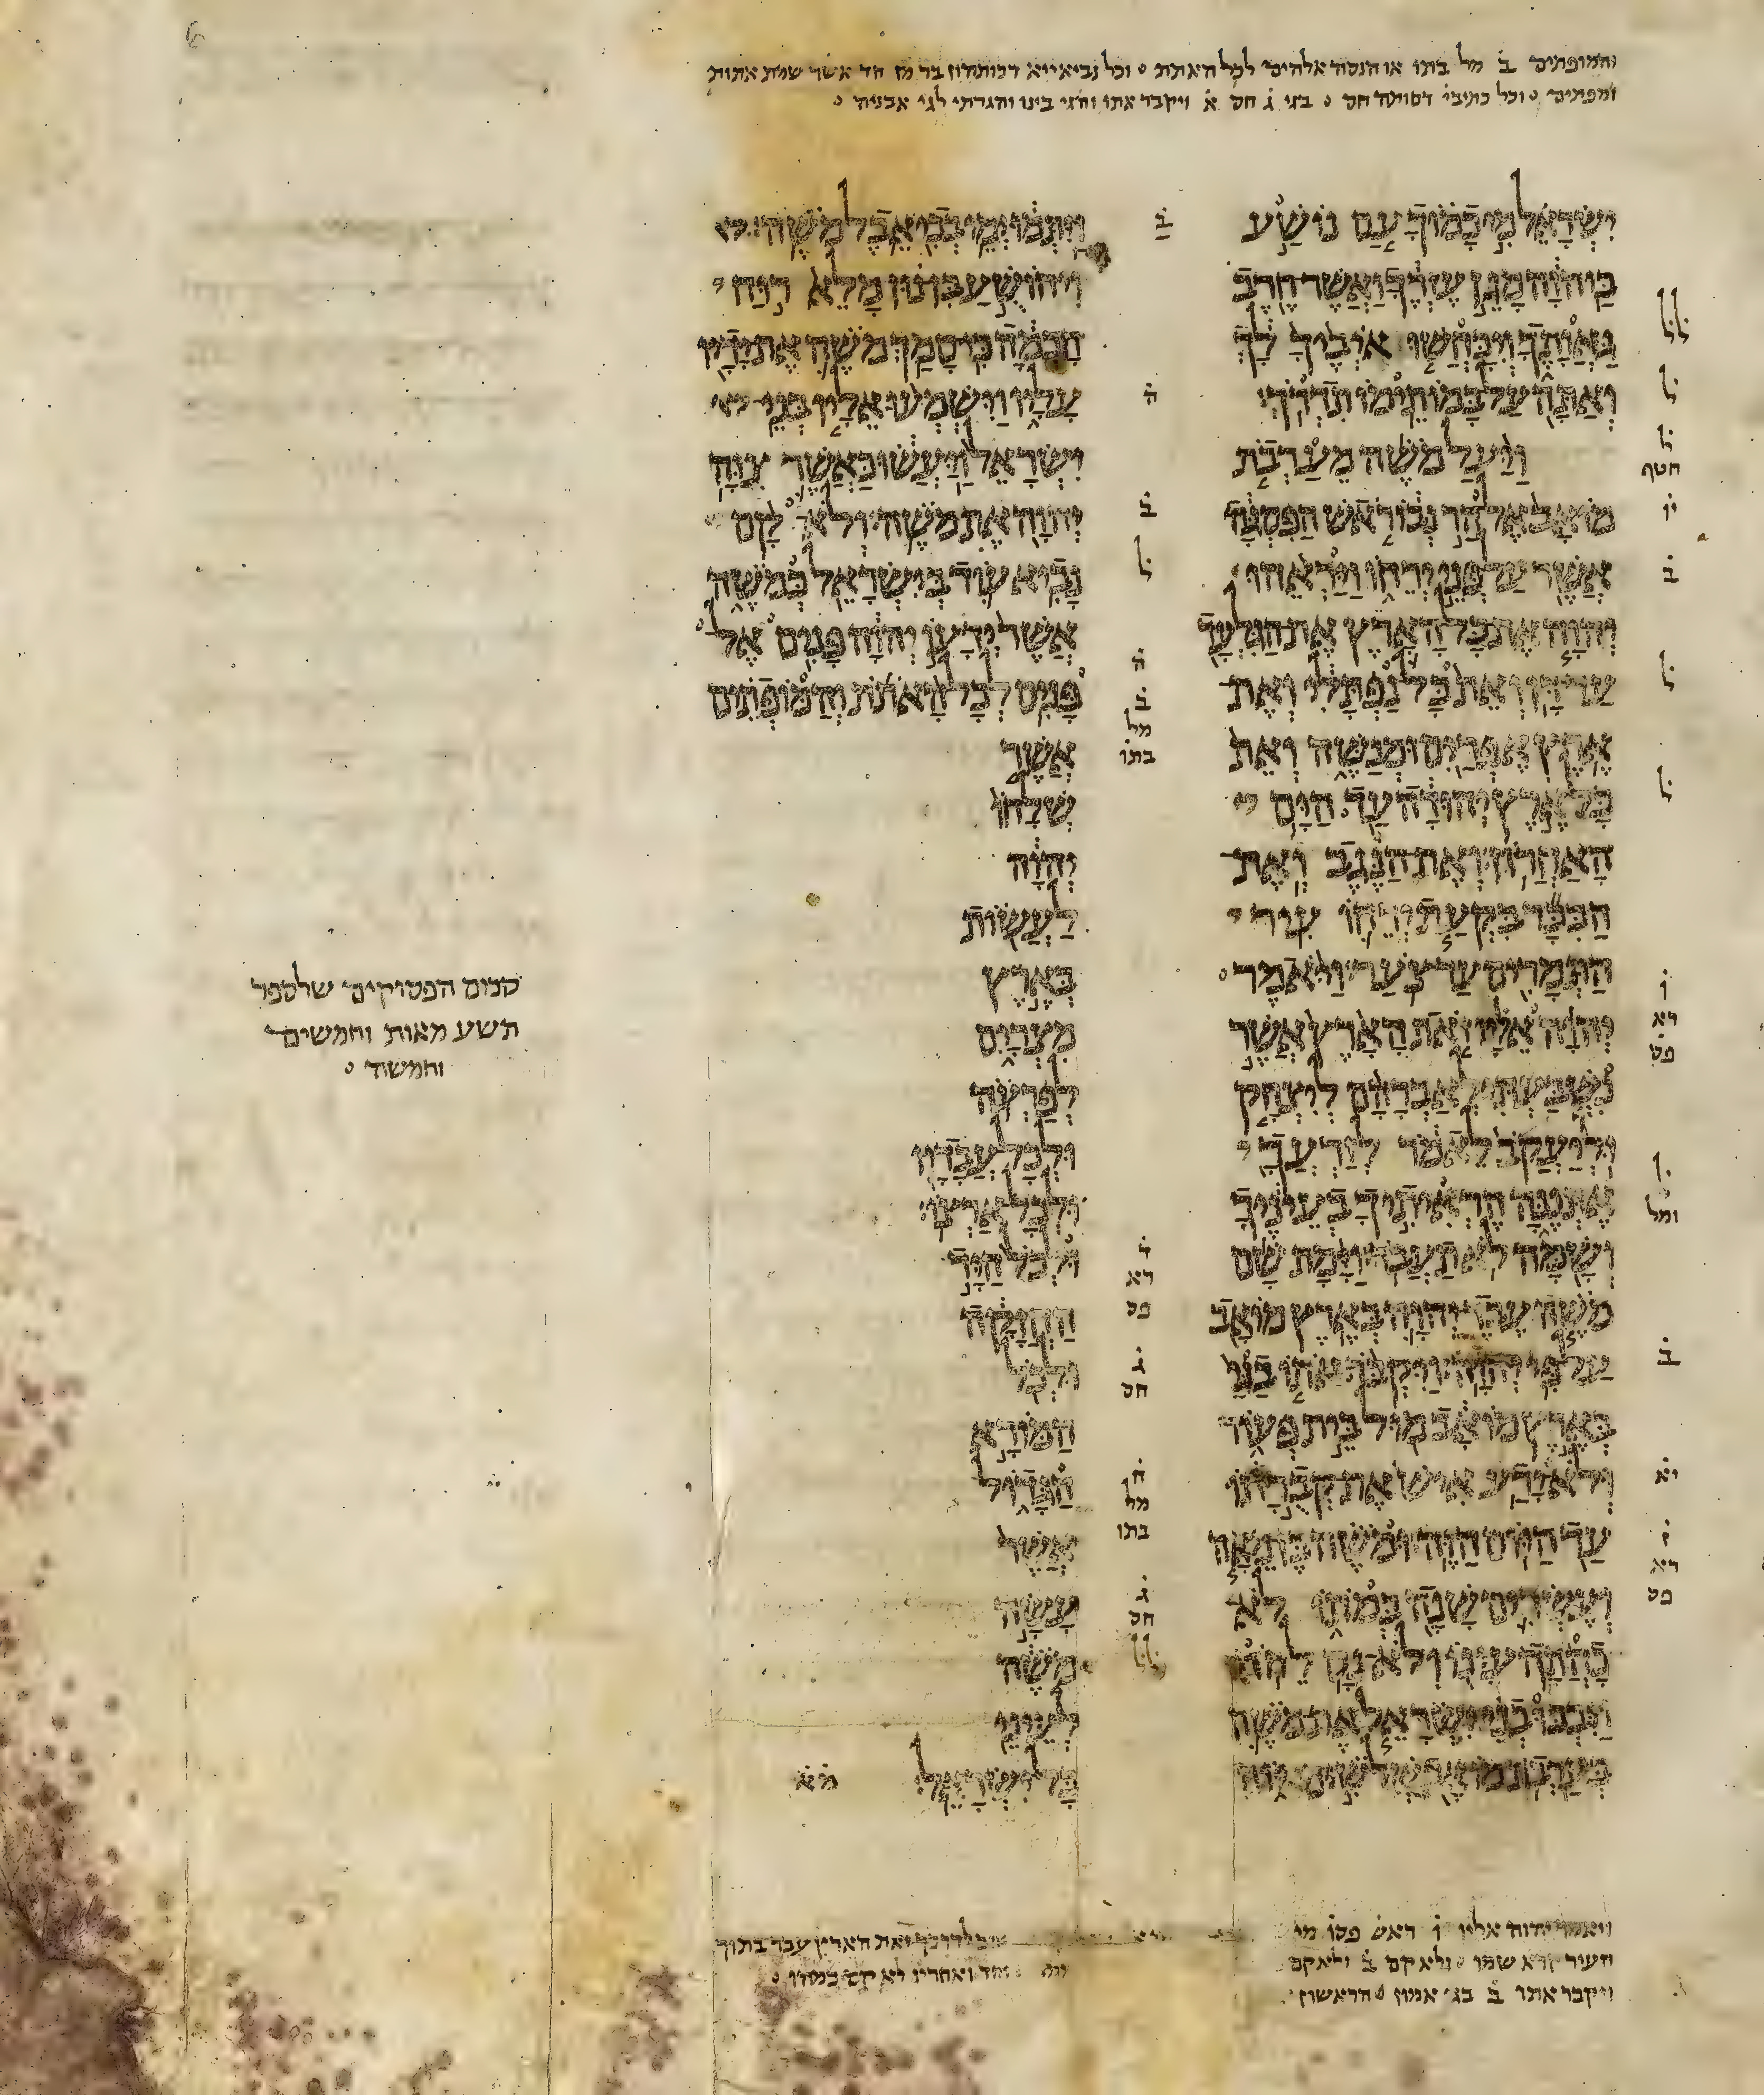 והמופתים ב מל בתו או הנסה אלהים לכל האתת וכל נביאייא דכותהון בר מן חד אשר שמת אתות
ומפתים וכל כתיבי דסותה חס בגי ג חס א ויקבר אתו והגי בינו והגרתי לגי אבניה
ישראל מי כמוך עם נושע
ביהוה מגן עזרך ואשר חרב
גאותך ויכחשו איביך לך
ואתה על במותימו תדרך
ויעל משה מערבת
מואב אל הר נבו ראש הפסגה
אשר על פני ירחו ויראהו
יהוה את כל הארץ את הגלעד
עד דן ואת כל נפתלי ואת
ארץ אפרים ומנשה ואת
כל ארץ יהודה עד הים
האחרון ואת הנגב ואת
הככר בקעת ירחו עיר
התמרים עד צער ויאמר
יהוה אליו זאת הארץ אשר
נשבעתי לאברהם ליצחק
וליעקב לאמר לזרעך
אתננה הראיתיך בעיניך
ושמה לא תעבר וימת שם
משה עבד יהוה בארץ מואב
על פי יהוה ויקבר אתו בגי
בארץ מואב מול בית פעור
ולא ידע איש את קברתו
עד היום הזה ומשה בן מאה
ועשרים שנה במותו לא
כהתה עינו ולא נס לחה
ויבכו בני ישראל את משה
בערבת מואב שלשים יום
ויתמו ימי בכי אבל משה
ויהושע בן נון מלא רוח
חכמה כי סמך משה את ידיו
עליו וישמעו אליו בני
ישראל ויעשו כאשר צוה
יהוה את משה ולא קם
נביא עוד בישראל כמשה
אשר ידעו יהוה פנים אל
פנים לכל האתת והמופתים
אשר
שלחו
יהוה
לעשות
בארץ
מצרים
לפרעה
ולכל עבדיו
ולכל ארצו
ולכל היד
החזקה
ולכל
המורא
הגדול
אשר
עשה
משה
לעיני
כל ישראל
סכום הפסוקים שלספר
תשע מאות וחמשים
וחמשה
ל ל
ל
ל
חטף
יו
ב
ל
ל
ו
רא
פס
ל
ומל
ב
יא
ז
רא
פס
ב
ה
ב
ל
ה
ב
מל
בתו
ד
רא
פס
ג
חס
ח
מל
בתו
ג
חס
ל ל
ויאמר יהוה אליו ו ראש פסו מי
העיר קרא שמו ולא קם ב ולא קם
ויקבר אתו ב בגי אמון הראשון
את הארץ עבר בתוך
ואחריו לא קם כמהו